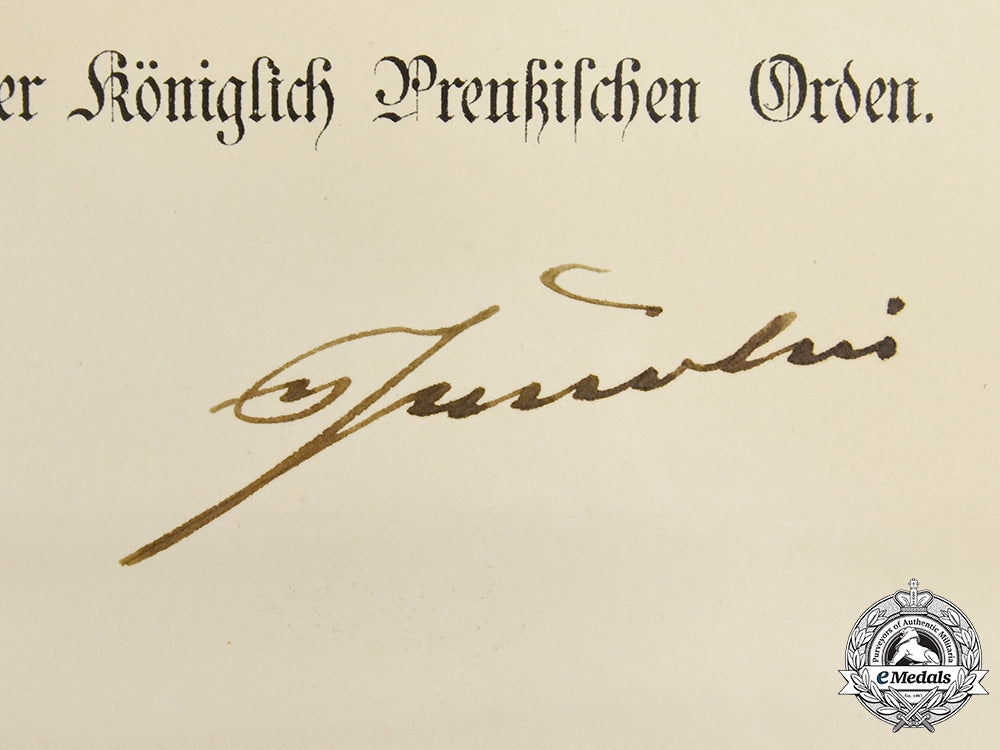 er Königlich Preußischen Orden.
Purveyors of Authentic Militaria
eMedals
Est. 1967